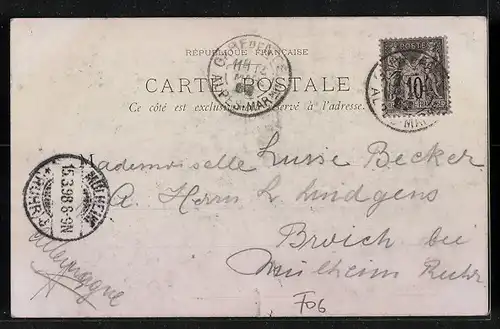 RÉPUBLIQUE FRANÇAISE
CARTE POSTALE
Ce côté est exclusivement réservé à l'adresse.
POSTES
10
ALPES-MARMES
MÜLHEIM
15.3.98.8-9N
Mademoiselle Lusse Becker
A. Herrn L. Lindgens
Broich bei
Mülheim Ruhr.
Allemagne
F06